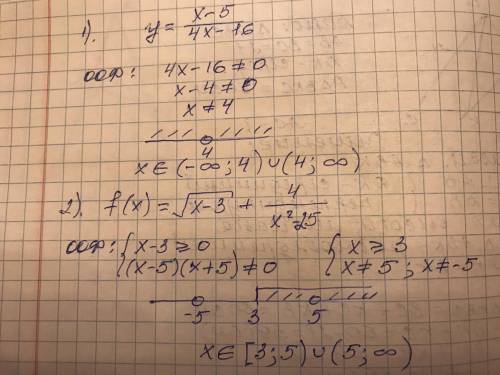 1). y = (x-5)/(4x-16)
ооф: 4x-16≠0
x-4≠0
x≠4
4
x∈(-∞;4)∪(4;∞)
2). f(x)=√(x-3) + 4/(x²-25)
ооф: { x-3≥0 { x≥3
(x-5)(x+5)≠0 x≠5; x≠-5
-5 3 5
x∈[3;5)∪(5;∞)